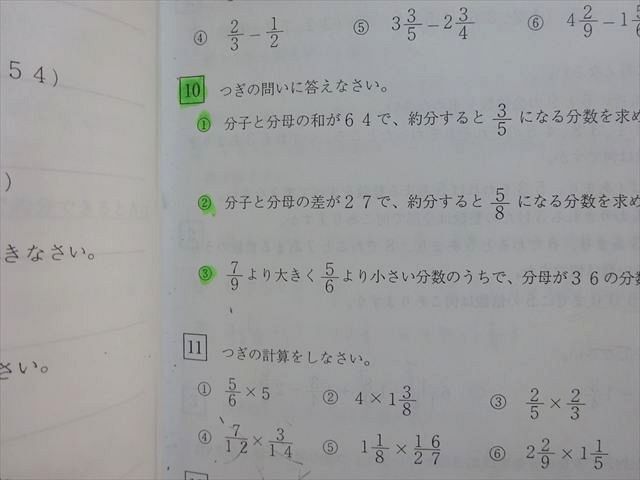 54)
)
きなさい。
さい。
④ 2/3 − 1/2 ⑤ 3 3/5 − 2 3/4 ⑥ 4 2/9 − 1
10 つぎの問いに答えなさい。
① 分子と分母の和が64で、約分すると 3/5 になる分数を求め
② 分子と分母の差が27で、約分すると 5/8 になる分数を求め
③ 7/9 より大きく 5/6 より小さい分数のうちで、分母が36の分数
11 つぎの計算をしなさい。
① 5/6 × 5 ② 4 × 1 3/8 ③ 2/5 × 2/3
④ 7/12 × 3/14 ⑤ 1 1/8 × 16/27 ⑥ 2 2/9 × 1 1/5